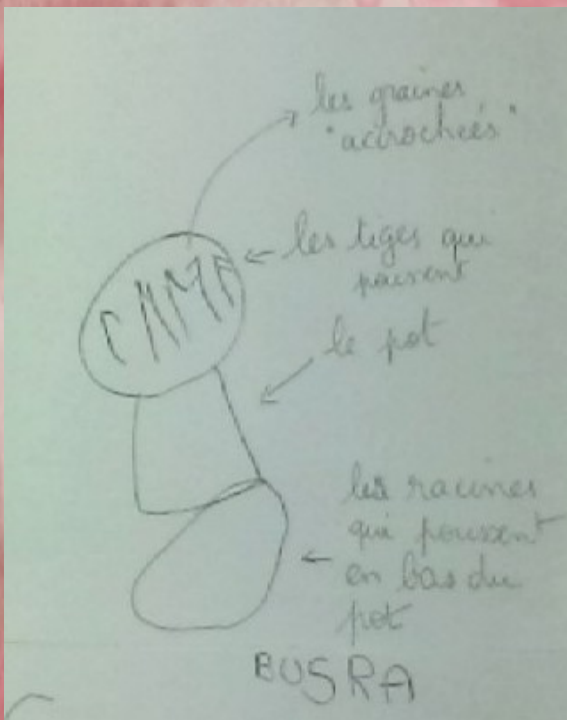 les graines
"accrochées"
les tiges qui
poussent
le pot
les racines
qui poussent
en bas du
pot
BUSRA